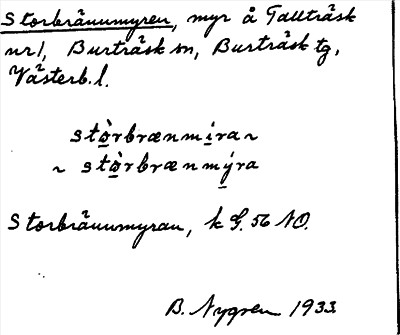 Storbrännmyren, myr å Tallträsk
nr 1, Burträsk sn, Burträsk tg,
Västerb. l.
stòrbrænmira ~
~ stòrbrænmýra
Storbrännmyran, k G. 56 NO.
B. Nygren 1933.